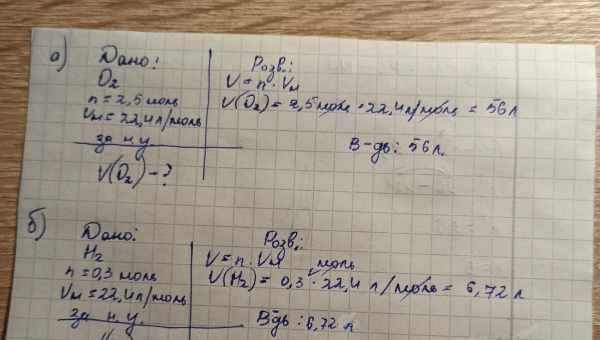 а) Дано:
O₂
n = 2,5 моль
Vм = 22,4 л/моль
за н.у.
V(O₂) - ?
Розв.:
V = n · Vм
V(O₂) = 2,5 моль · 22,4 л/моль = 56 л
В-дь: 56 л.
б) Дано:
H₂
n = 0,3 моль
Vм = 22,4 л/моль
за н.у.
Розв.:
V = n · Vм
моль
V(H₂) = 0,3 · 22,4 л/моль = 6,72 л
В-дь: 6,72 л